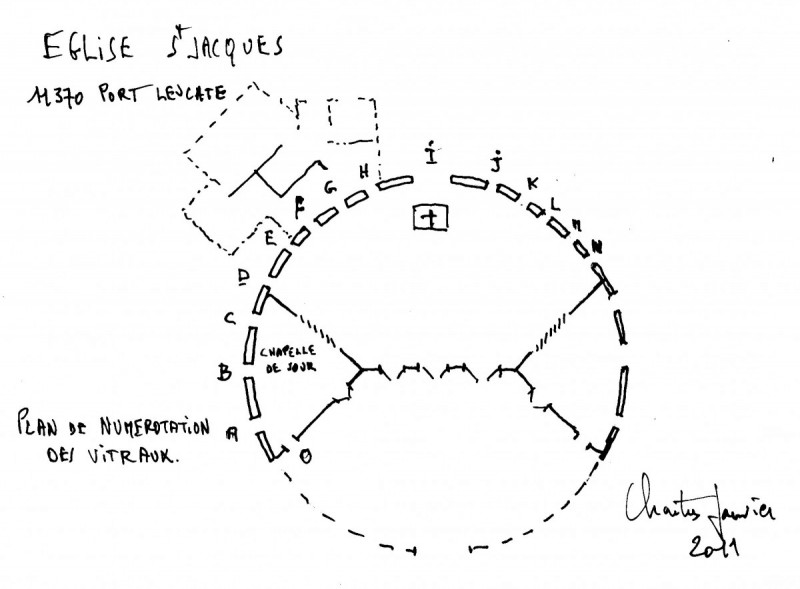 EGLISE St JACQUES
11370 PORT LEUCATE
I
H
J
G
K
F
L
M
E
N
D
C
CHAPELLE
DE JOUR
B
PLAN DE NUMEROTATION
DES VITRAUX.
A
O
Janvier
2011